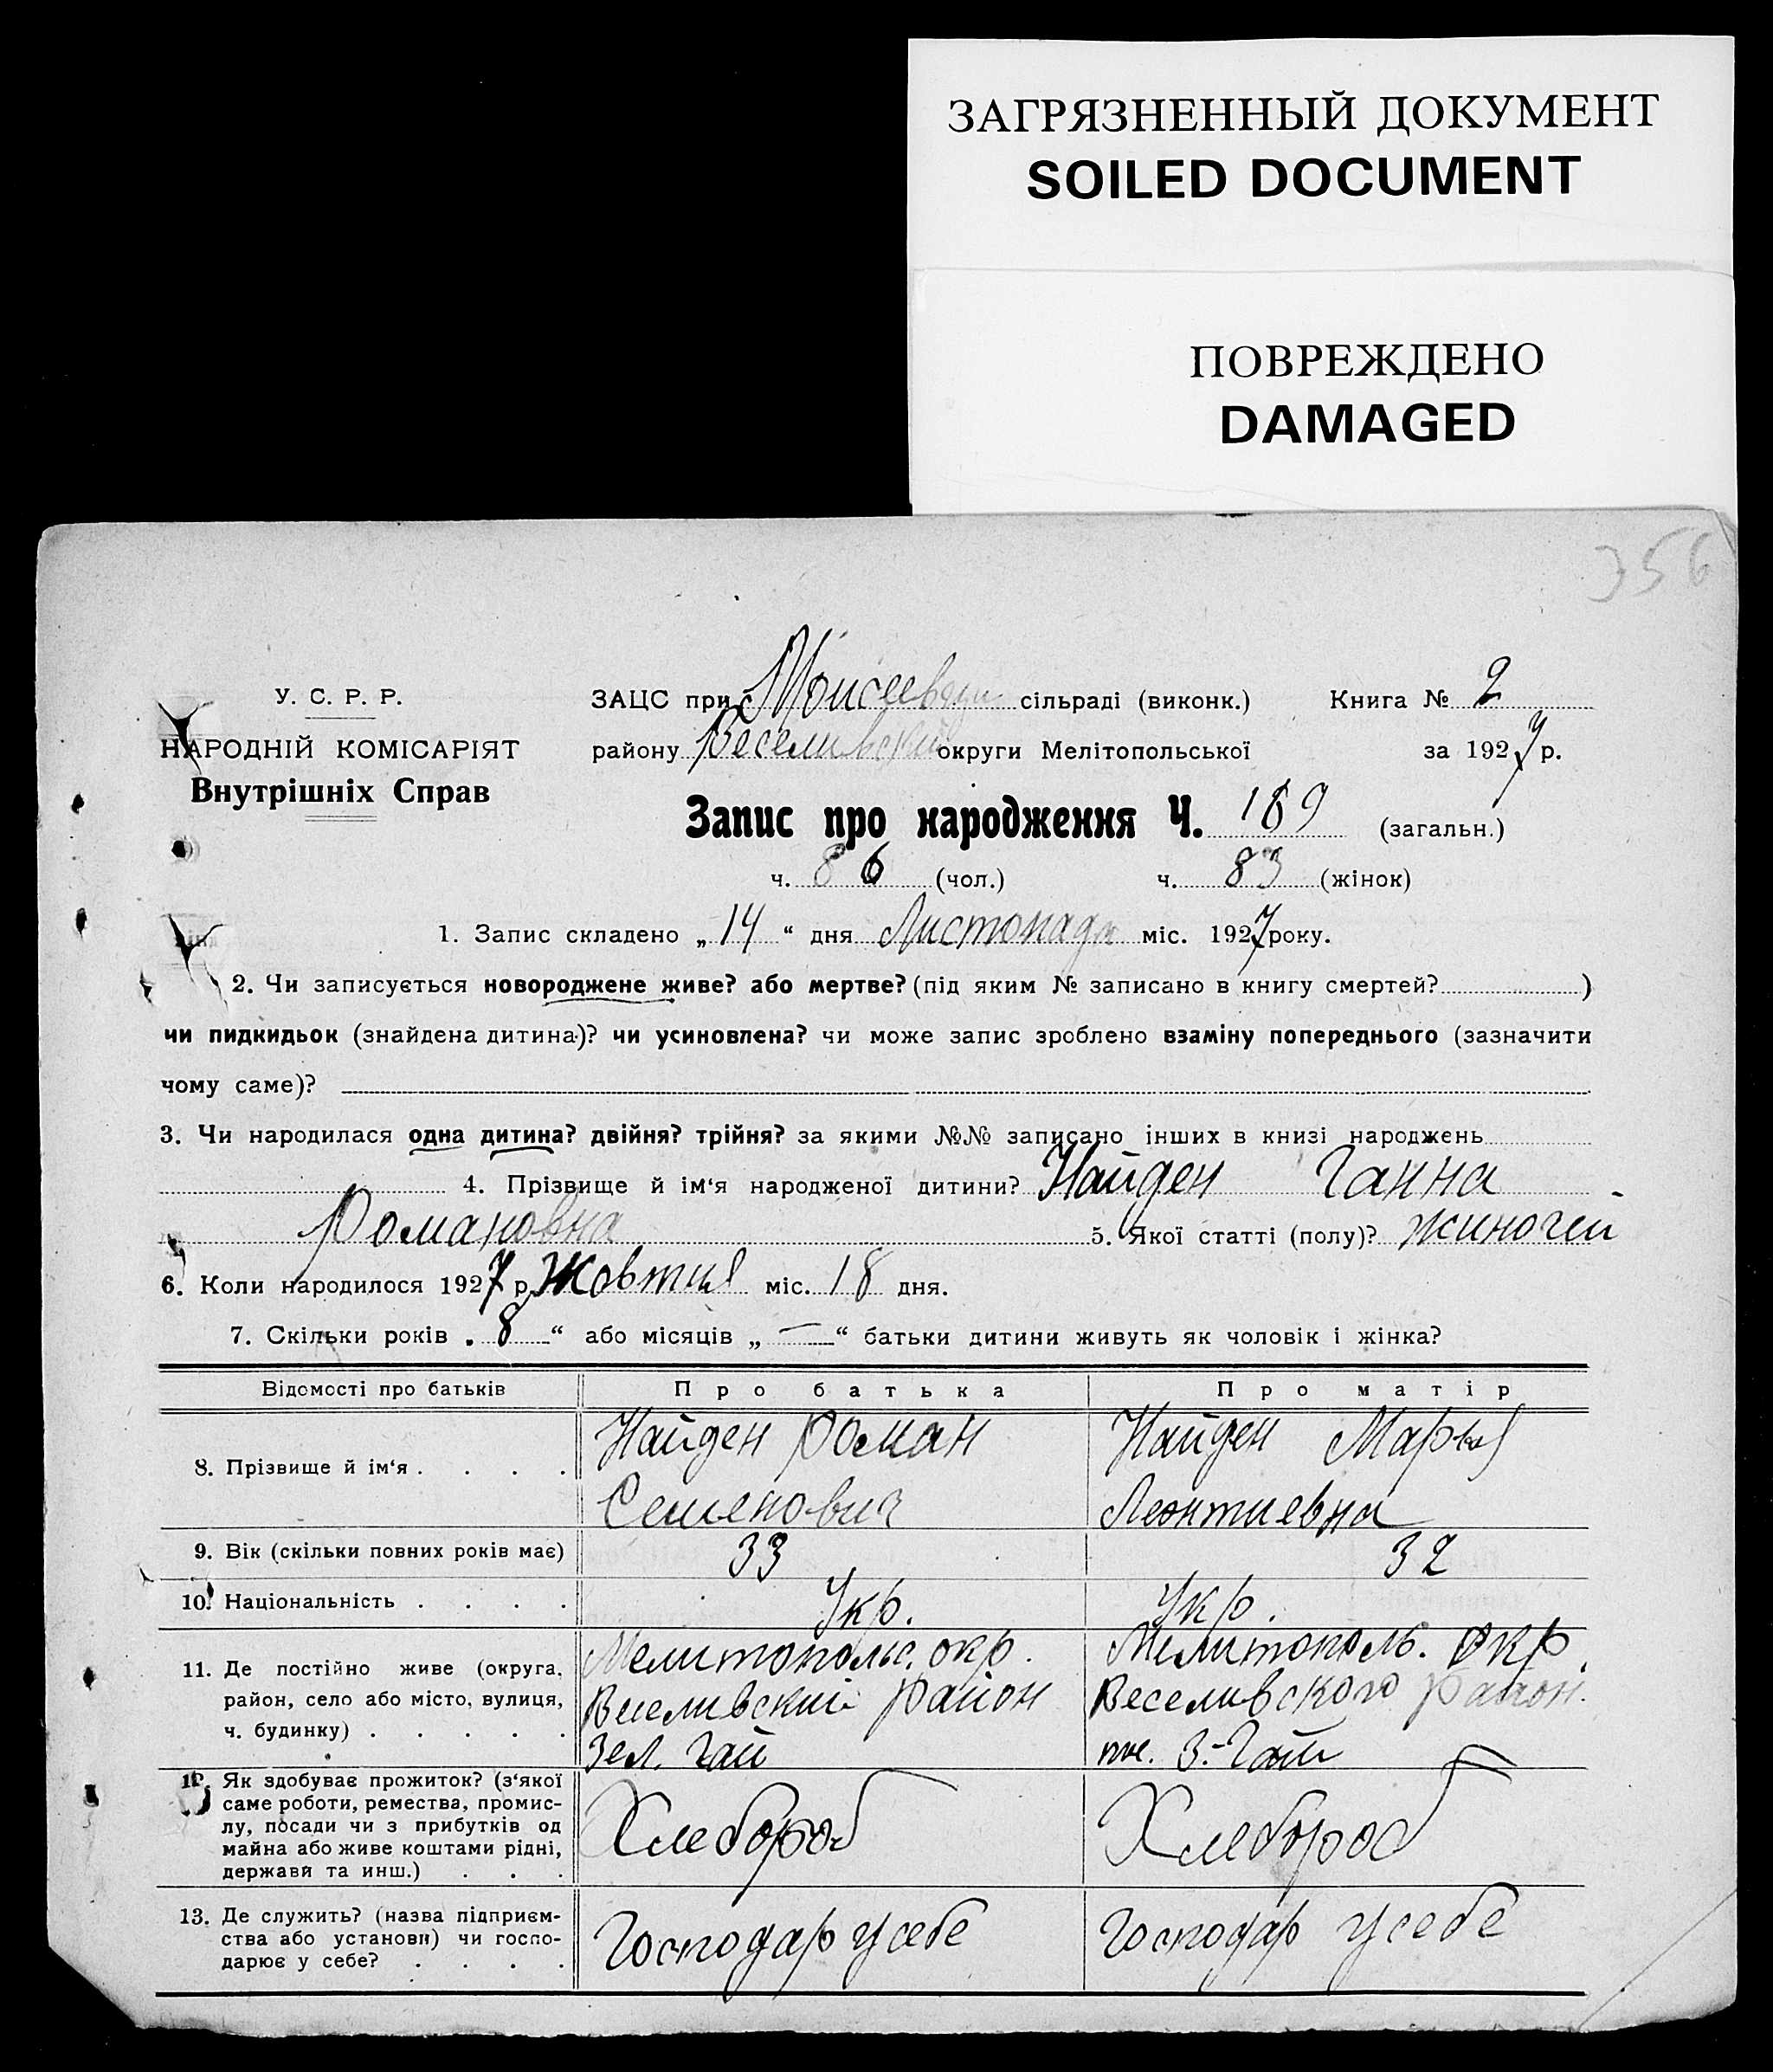 ЗАГРЯЗНЕННЫЙ ДОКУМЕНТ
SOILED DOCUMENT
ПОВРЕЖДЕНО
DAMAGED
356
У. С. Р. Р.
НАРОДНІЙ КОМІСАРІЯТ
Внутрішніх Справ
ЗАЦС при сільраді (виконк.) Книга № 2
району округи Мелітопольської за 1927 р.
Запис про народження Ч. 169 (загальн.)
ч. 86 (чол.) ч. 83 (жінок)
1. Запис складено „14“ дня Листопада міс. 1927 року.
2. Чи записується новороджене живе? або мертве? (під яким № записано в книгу смертей? )
чи пидкидьок (знайдена дитина)? чи усиновлена? чи може запис зроблено взаміну попереднього (зазначити
чому саме)?
3. Чи народилася одна дитина? двійня? трійня? за якими №№ записано інших в книзі народжень
4. Прізвище й ім‘я народженої дитини? Найден Ганна
Романовна 5. Якої статті (полу)? жиночеи
6. Коли народилося 1927 р. Жовтня міс. 18 дня.
7. Скільки років „8“ або місяців „—“ батьки дитини живуть як чоловік і жінка?
Відомості про батьків Про батька Про матір
8. Прізвище й ім‘я . . . . Найден Роман Найден Марья
Семенович Леонтиевна
9. Вік (скільки повних років має) 33 32
10. Національність . . . . Укр. Укр.
11. Де постійно живе (округа, Мелитопольс. окр. Мелитополь. окр.
район, село або місто, вулиця, Веселивский район Веселивского район.
ч. будинку) . . . . . Зел. Гай З.-Гай
12. Як здобуває прожиток? (з‘якої
саме роботи, ремества, промис-
лу, посади чи з прибутків од Хлебороб Хлебороб
майна або живе коштами рідні,
держави та инш.) . . .
13. Де служить? (назва підприєм-
ства або установи) чи госпо- Господар у себе Господар у себе
дарює у себе? . . . .